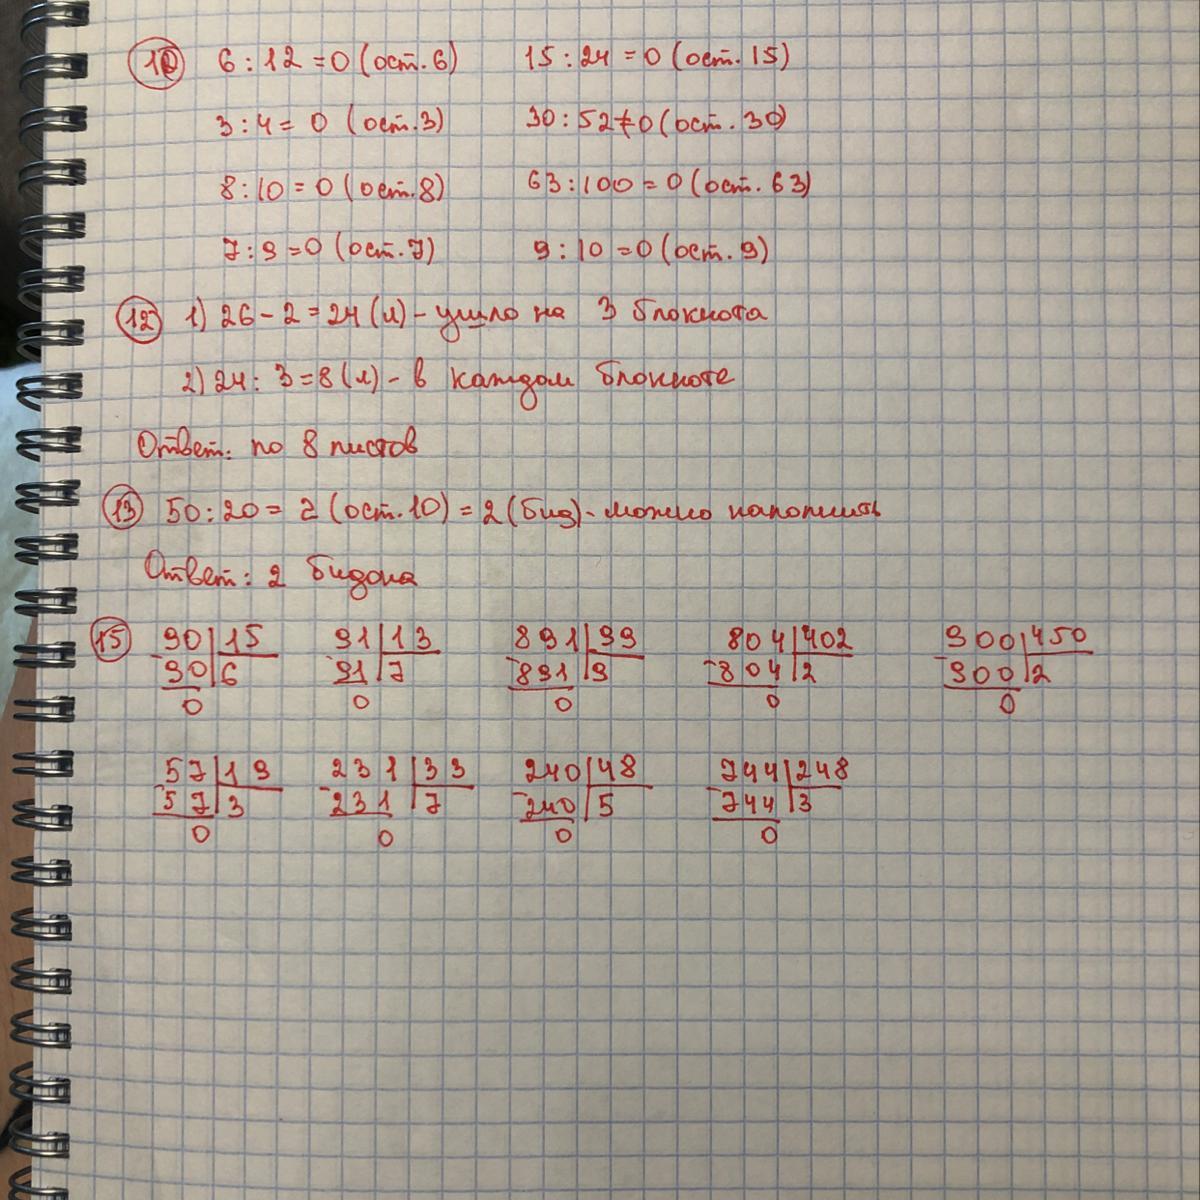 10 6 : 12 = 0 (ост. 6) 15 : 24 = 0 (ост. 15)
3 : 4 = 0 (ост. 3) 30 : 52 = 0 (ост. 30)
8 : 10 = 0 (ост. 8) 63 : 100 = 0 (ост. 63)
7 : 9 = 0 (ост. 7) 9 : 10 = 0 (ост. 9)
12 1) 26 - 2 = 24 (л) - ушло на 3 блокнота
2) 24 : 3 = 8 (л) - в каждом блокноте
Ответ: по 8 листов
13 50 : 20 = 2 (ост. 10) = 2 (бид) - можно наполнить
Ответ: 2 бидона
15 90 | 15 91 | 13 891 | 99 804 | 402 900 | 450
- 90 | 6 - 91 | 7 - 891 | 9 - 804 | 2 - 900 | 2
0 0 0 0 0
57 | 19 231 | 33 240 | 48 744 | 248
- 57 | 3 - 231 | 7 - 240 | 5 - 744 | 3
0 0 0 0